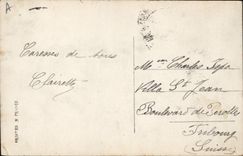 A
Caresses de tous
Clairette
Charles
Villa St Jean
Boulevard de Perolles
Fribourg
(Suisse)